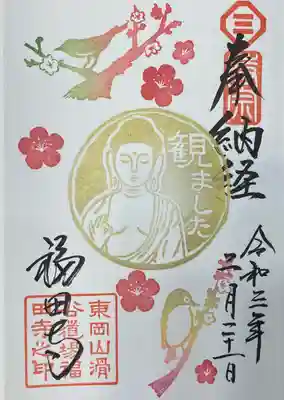 奉納経
令和三年
二月二十一日
観ました
福田寺
東岡山滑
谷道場福
田寺之印